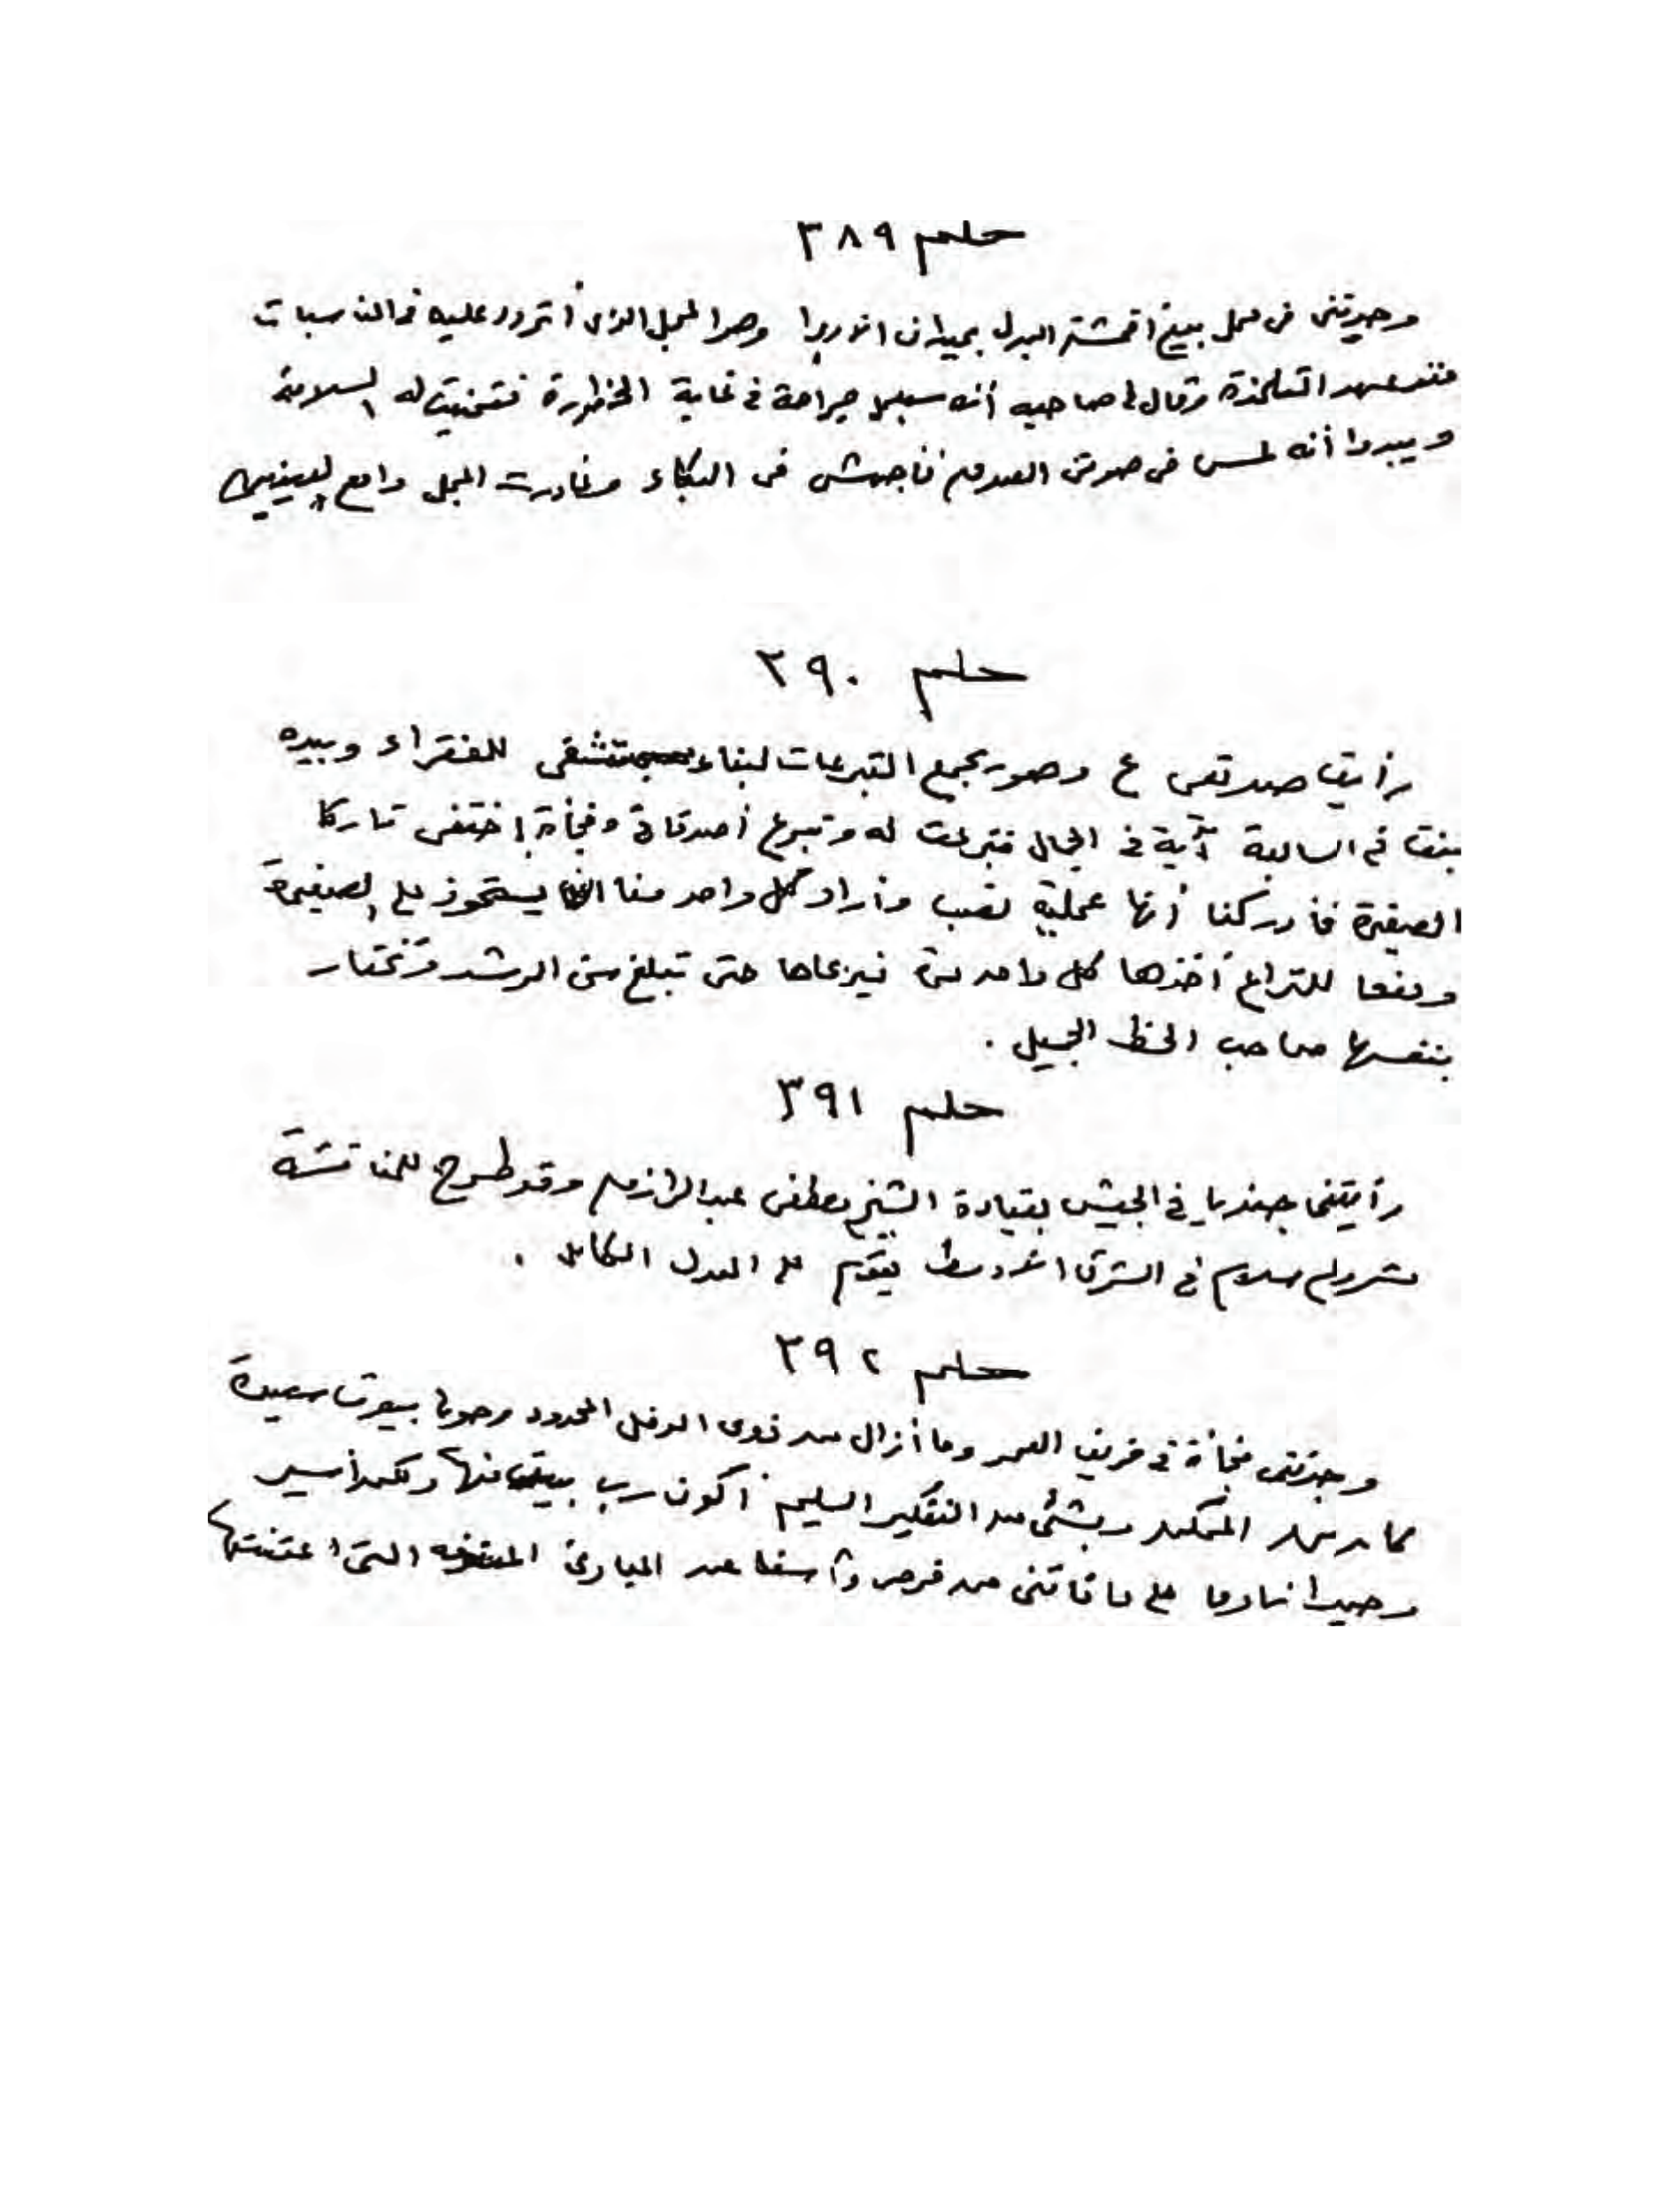 حلم ٣٨٩
وجدتنى فى محل بيع أقمشة البدل بميدان الأوبرا وهو المحل الذى أتردد عليه فى المناسبات
منذ عهد التلمذة وقال لى صاحبه أنه سيعمل جراحة فى غاية الخطورة فتمنيت له السلامة
ويبدوا أنه لمس فى صوتى الصدق فأجهش فى البكاء وغادرت المحل دامع العينين
حلم ٣٩٠
رأيت صديقى ع وهو يجمع التبرعات لبناء مستشفى للفقراء وبيده
بنت فى السابعة آية فى الجمال فتبرعت له وتبرع أصدقائى وفجأة إختفى تاركا
الصغيرة فأدركنا أنها عملية نصب وأراد كل واحد منا أن يستحوذ على الصغيرة
ومنعا للنزاع أخذها كل واحد مدة ليرعاها حتى تبلغ سن الرشد وتختار
بنفسها صاحب الحظ الجميل .
حلم ٣٩١
رأيتنى جنديا فى الجيش بقيادة الشيخ مصطفى عبد الرازق وقد طرح للمناقشة
مشروع سلام فى الشرق الأوسط يقوم على العدل الكامل .
حلم ٣٩٢
وجدتنى فجأة فى خريف العمر وما أزال من ذوى الدخل المحدود وحولنا بيوت سعيدة
كما من الممكن وبشئ من التفكير السليم أكون رب بيت منها ولكن أسير
وحيدا نادما على ما فاتنى من فرص وآسفا عن المبادئ التى اعتنقتها